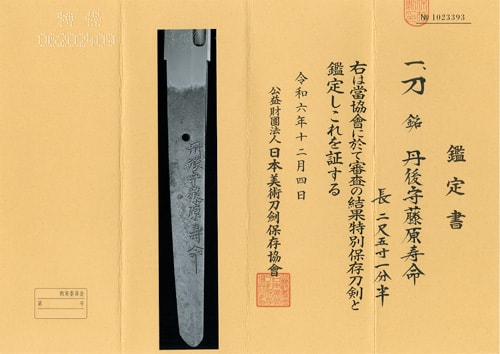 № 1023393
鑑定書
一、刀 銘 丹後守藤原寿命
長 二尺五寸一分半
右は當協會に於て審査の結果特別保存刀剣と
鑑定しこれを証する
令和六年十二月四日
公益財團法人 日本美術刀劍保存協會
丹後守藤原寿命